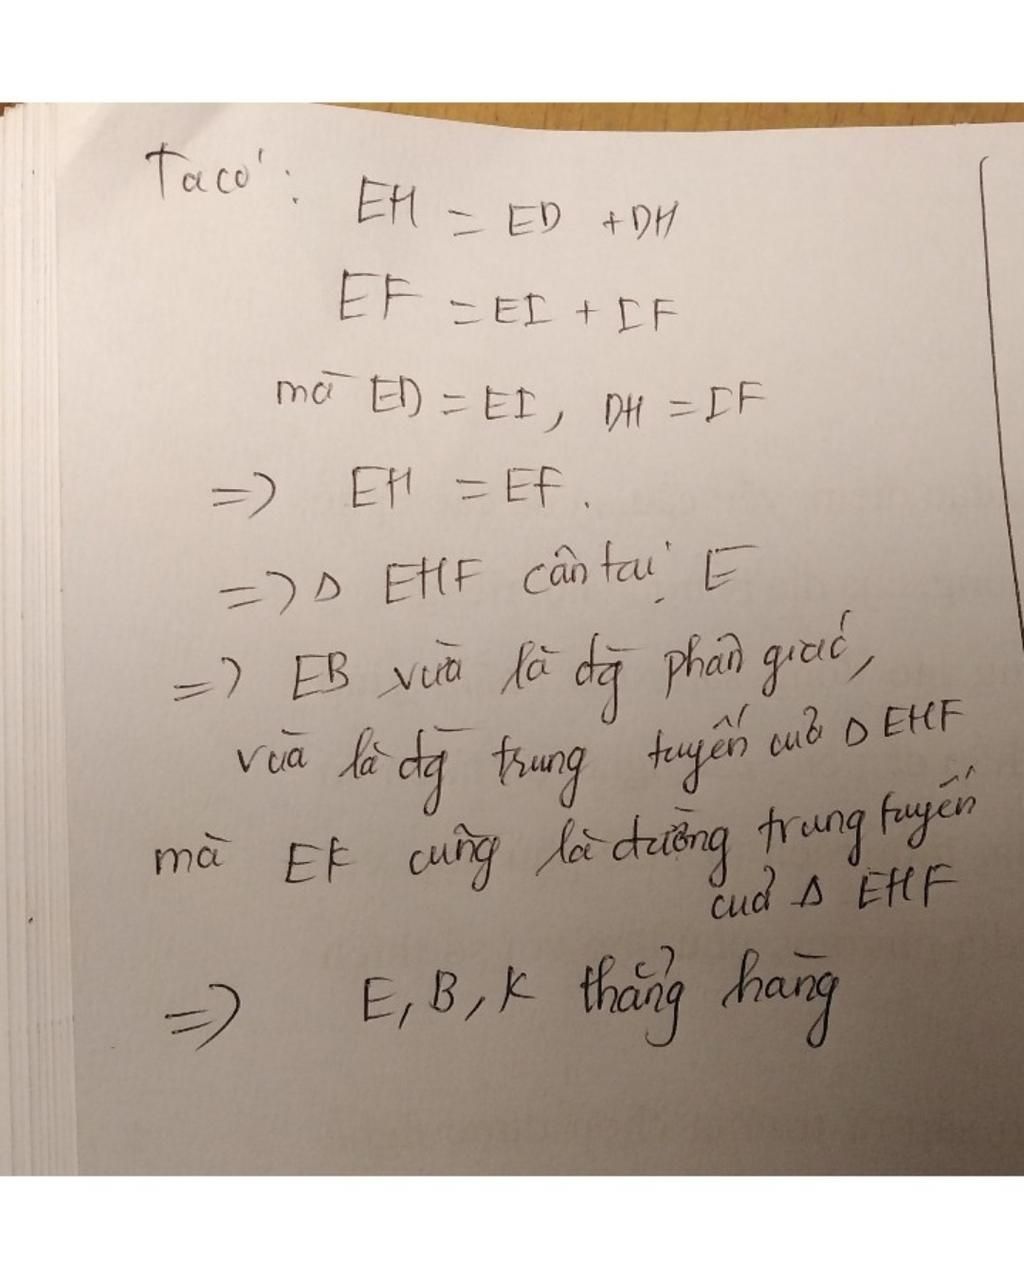 Ta có:
EH = ED + DH
EF = EI + IF
mà ED = EI, DH = IF
=> EH = EF.
=> Δ EHF cân tại E
=> EB vừa là đg phân giác,
vừa là đg trung tuyến của Δ EHF
mà EK cũng là đường trung tuyến
của Δ EHF
=> E, B, K thẳng hàng